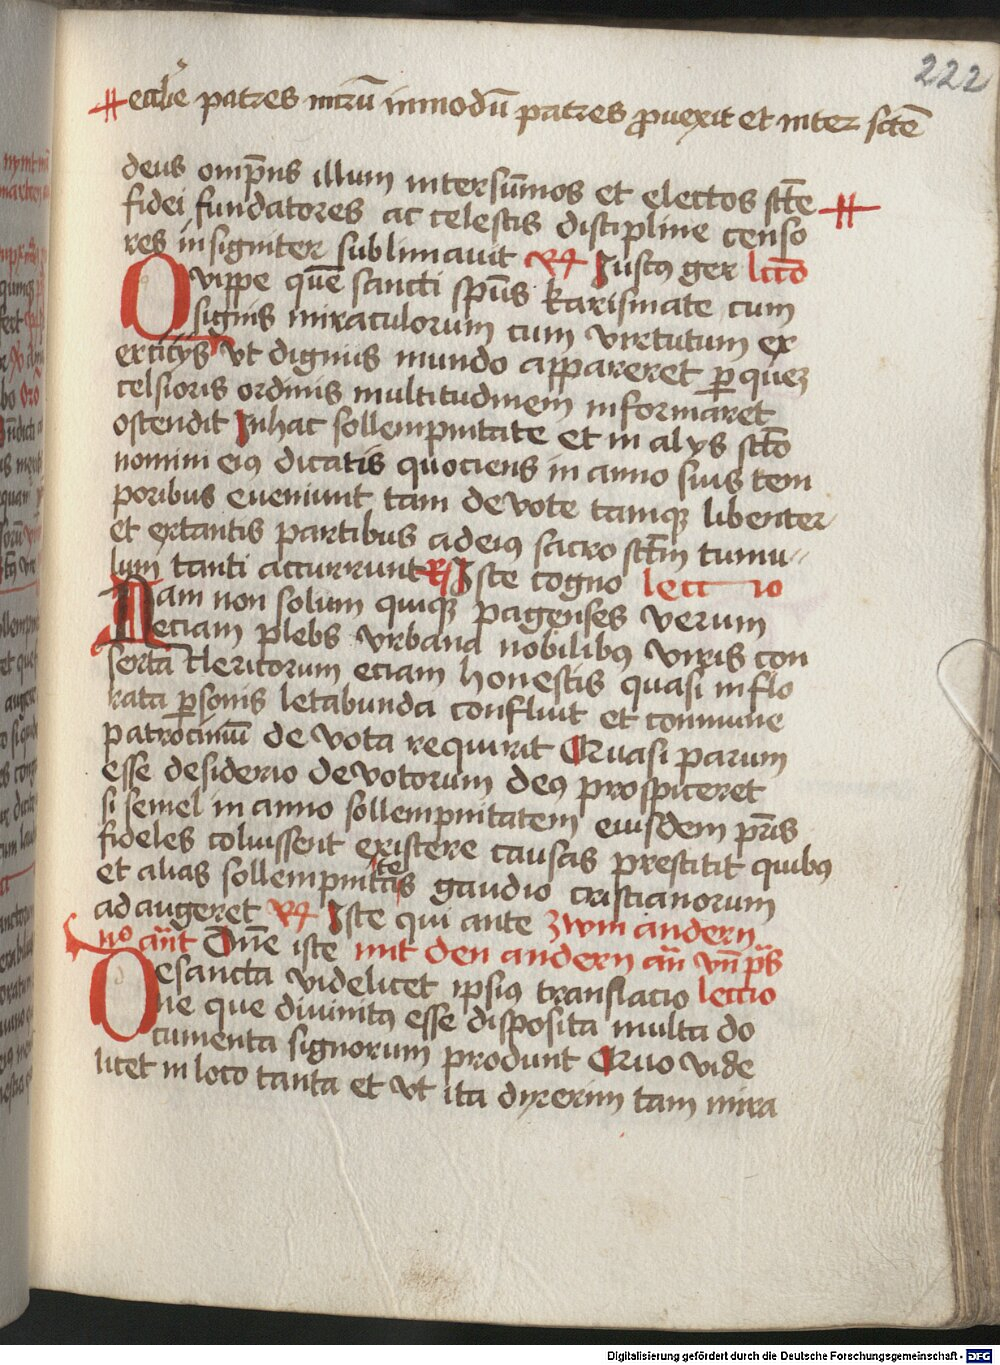 222
eccl̄ie patres mirū inmodū patres ꝓuexit et inter sctē
deus omp̄ns illum intersūmos et electos sctē
fidei fundatores ac celestis discipline censo
res insigniter sublimauit R⁊ Iustꝰ ger lcc̄o
Quippe quē sancti sp̄us karismate cum
signis miraculorum cum vretutum ex
ercitys vt dignus mundo appareret ꝑ quez
celsioris ordinis multitudinem informaret
ostendit Inhac sollempnitate et in alys sct̄o
nomini eiꝰ dicatis quociens in anno suis tem
poribus eueniunt tam deuote tamqꝫ libenter
et extantis partibus ad eiꝰ sacro sct̄m tumu
lum tanti accurrunt R⁊ Iste cogno lectio
Nam non solum quiqꝫ pagenses verum
eciam plebs vrbana nobilibꝰ viris con
serta clericorum eciam honestis quasi inflo
rata ꝑsonis letabunda confluit et commune
patrociniū deuota requirit Quasi parum
esse desiderio deuotorum deꝰ prospiceret
si semel in anno sollempnitatem eiusdem pr̄is
fideles coluissent existere causas prestitit quibꝰ
et alias sollempnitates gaudio cristianorum
adaugeret R⁊ Iste qui ante zwm andern
noct̄ an̄t Dn̄e iste mit den andern an̄ vn̄ ps̄
Desancta videlicet ipsiꝰ translacio lectio
ne que diuinitꝰ esse disposita multa do
cumenta signorum produnt Quo vide
licet in loco tanta et vt ita dyxerim tam mira
Digitalisierung gefördert durch die Deutsche Forschungsgemeinschaft - DFG